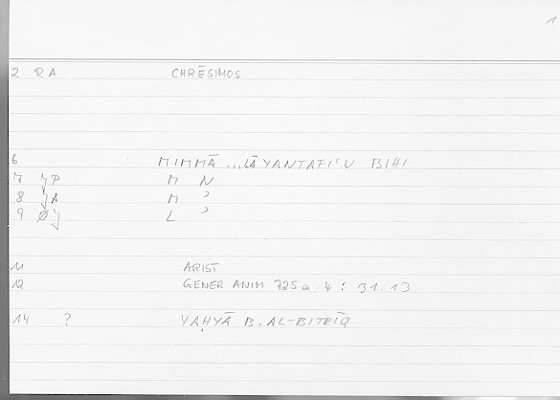 1
2 R A CHRĒSIMOS
6 MIMMĀ ... LĀ YANTAFIʿU BIHI
7 P M N
8 A M ʾ
9 Ø L ʾ
11 ARIST
12 GENER ANIM 725 a 4 : 31.13
14 ? YAḤYĀ B. AL-BIṬRĪQ